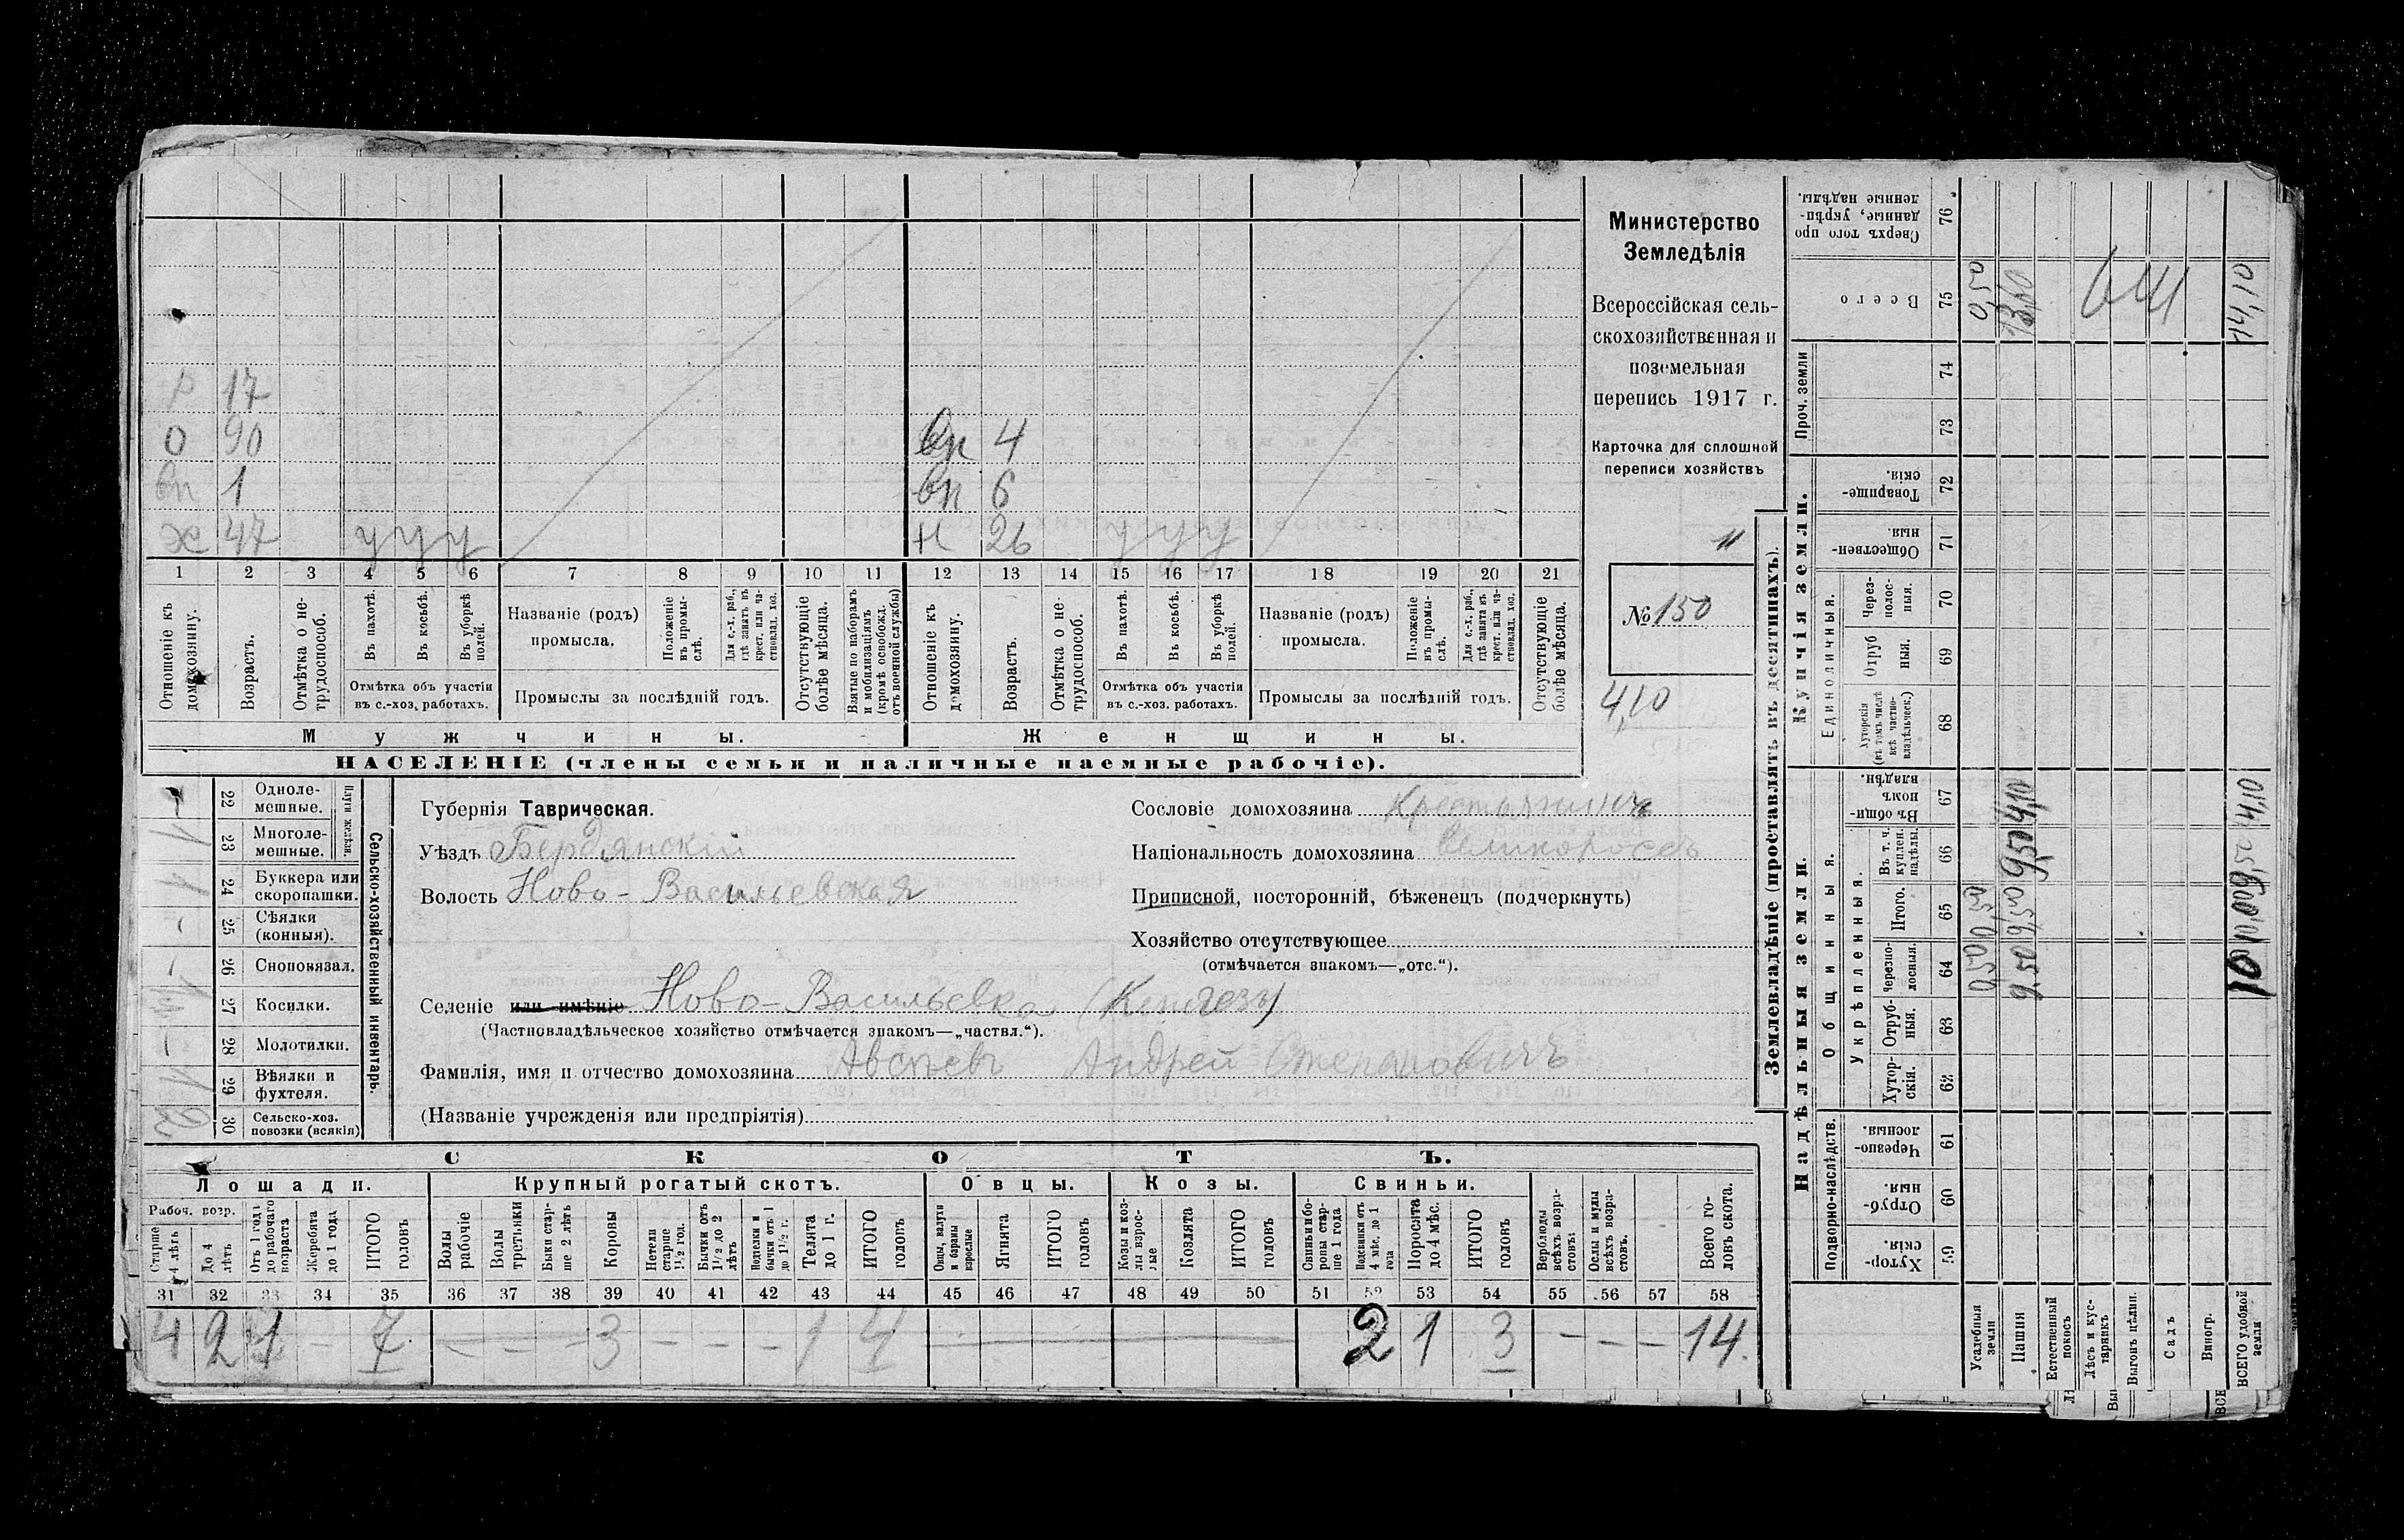 Министерство
Земледѣлія
Всероссійская сель-
скохозяйственная и
поземельная
перепись 1917 г.
Карточка для сплошной
переписи хозяйствъ
№ 150
4,10
17
О 90
вп 4
вп 1
вп 6
х 47 у у у
н 26 у у у
1 2 3 4 5 6 7 8 9 10 11 12 13 14 15 16 17 18 19 20 21
Отношеніе къ домохозяину.
Возрастъ.
Отмѣтка о не-трудоспособ.
Въ пахотѣ.
Въ косьбѣ.
Въ уборкѣ полей.
Отмѣтка объ участіи
въ с.-хоз. работахъ.
Названіе (родъ)
промысла.
Положеніе въ промы-слѣ.
Для с.-х. раб., гдѣ занятъ въ крест. или ча-стновлад. хоз.
Промыслы за послѣдній годъ.
Отсутствующіе болѣе мѣсяца.
Взятые по наборамъ и мобилизаціямъ (кромѣ освобожд. отъ военной службы)
Отношеніе къ домохозяину.
Возрастъ.
Отмѣтка о не-трудоспособ.
Въ пахотѣ.
Въ косьбѣ.
Въ уборкѣ полей.
Отмѣтка объ участіи
въ с.-хоз. работахъ.
Названіе (родъ)
промысла.
Положеніе въ промы-слѣ.
Для с.-х. раб., гдѣ занята въ крест. или ча-стновлад. хоз.
Промыслы за послѣдній годъ.
Отсутствующіе болѣе мѣсяца.
Мужчины. Женщины.
НАСЕЛЕНІЕ (члены семьи и наличные наемные рабочіе).
Сельско-хозяйственный инвентарь.
Плуги желѣзн.
– 22 Одноле-мешные.
1 23 Многоле-мешные.
1 24 Буккера или скоропашки.
– 25 Сѣялки (конныя).
– 26 Сноповязал.
1 27 Косилки.
– 28 Молотилки.
1 29 Вѣялки и фухтеля.
2 30 Сельско-хоз. повозки (всякія)
Губернія Таврическая.
Уѣздъ Бердянскій
Волость Ново-Васильевская
Сословіе домохозяина Крестьянинъ
Національность домохозяина Великороссъ
Приписной, посторонній, бѣженецъ (подчеркнуть)
Хозяйство отсутствующее
(отмѣчается знакомъ—„отс.“).
Селеніе или имѣніе Ново-Васильевка (Кенгезъ)
(Частновладѣльческое хозяйство отмѣчается знакомъ—„частвл.“).
Фамилія, имя и отчество домохозяина Авсѣевъ Андрей Степановичъ
(Названіе учрежденія или предпріятія)
СКОТЪ.
Лошади. Крупный рогатый скотъ. Овцы. Козы. Свиньи.
Рабоч. возр.
Старше 4 лѣтъ
До 4 лѣтъ
Отъ 1 года до рабочаго возраста
Жеребята до 1 года
ИТОГО головъ
Волы рабочіе
Волы третьяки
Быки стар-ше 2 лѣтъ
Коровы
Нетели старше 1½ год.
Бычки отъ 1½ до 2 лѣтъ
Подтелки и бычки отъ 1 до 1½ г.
Телята до 1 г.
ИТОГО головъ
Овцы, валухи и бараны взрослые
Ягнята
ИТОГО головъ
Козы и коз-лы взрос-лые
Козлята
ИТОГО головъ
Свиньи и бо-ровы стар-ше 1 года
Подсвинки отъ 4 мѣс. до 1 года
Поросята до 4 мѣс.
ИТОГО головъ
Верблюды всѣхъ возра-стовъ.
Ослы и мулы всѣхъ возра-стовъ.
Всего го-ловъ скота.
31 32 33 34 35 36 37 38 39 40 41 42 43 44 45 46 47 48 49 50 51 52 53 54 55 56 57 58
4 2 1 – 7 – – – 3 – – – 1 4 2 1 3 – – – 14.
Землевладѣніе (проставлять въ десятинахъ).
Надѣльныя земли. Купчія земли.
Проч. земли
Подворно-наслѣдств.
Общинныя.
Укрѣпленныя.
Единоличныя.
Сверхъ того про-данные, укрѣп-ленные надѣлы. 76
Всего 75
74
73
Товарище-скія. 72
Обществен-ныя 71
Через-полос-ныя. 70
Отруб-ныя. 69
Хуторскія (въ томъ числѣ всѣ частно-владѣльческ.) 68
Въ общин-номъ владѣн. 67
Въ т. ч. куплен. надѣлы. 66
Итого. 65
Черезпо-лосныя. 64
Отруб-ныя. 63
Хутор-скія. 62
Черезпо-лосныя. 61
Отруб-ныя. 60
Хутор-скія. 59
Усадебныя земли
Пашня
Естественный покосъ
Лѣсъ и кус-тарникъ
Выгонъ цѣлин.
Садъ
Виногр.
ВСЕГО удобной земли
0,50 0,50 0,50
9,50 9,50 9,50 4,10 13,60
14,10
4,10